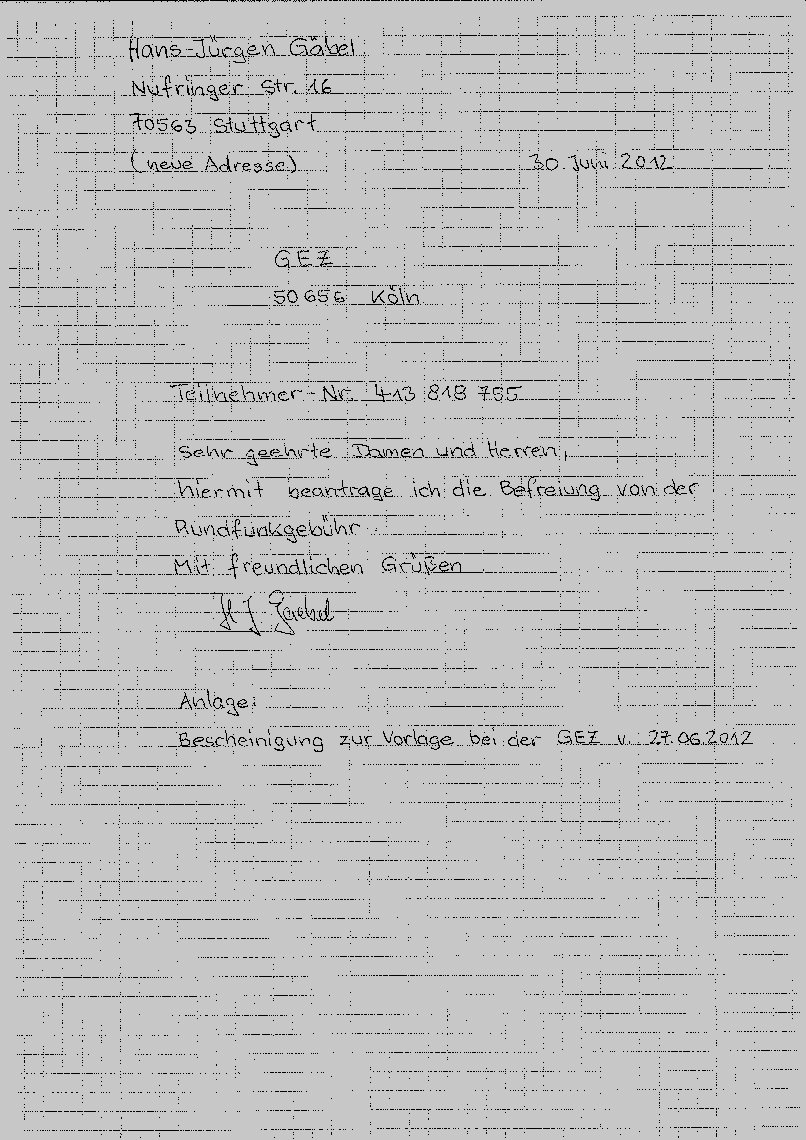 Hans-Jürgen Gäbel
Nufringer Str. 16
70563 Stuttgart
(neue Adresse) 30. Juni 2012
GEZ
50656 Köln
Teilnehmer-Nr. 413 818 765
Sehr geehrte Damen und Herren,
hiermit beantrage ich die Befreiung von der
Rundfunkgebühr.
Mit freundlichen Grüßen
H J Gaebel
Anlage:
Bescheinigung zur Vorlage bei der GEZ v. 27.06.2012